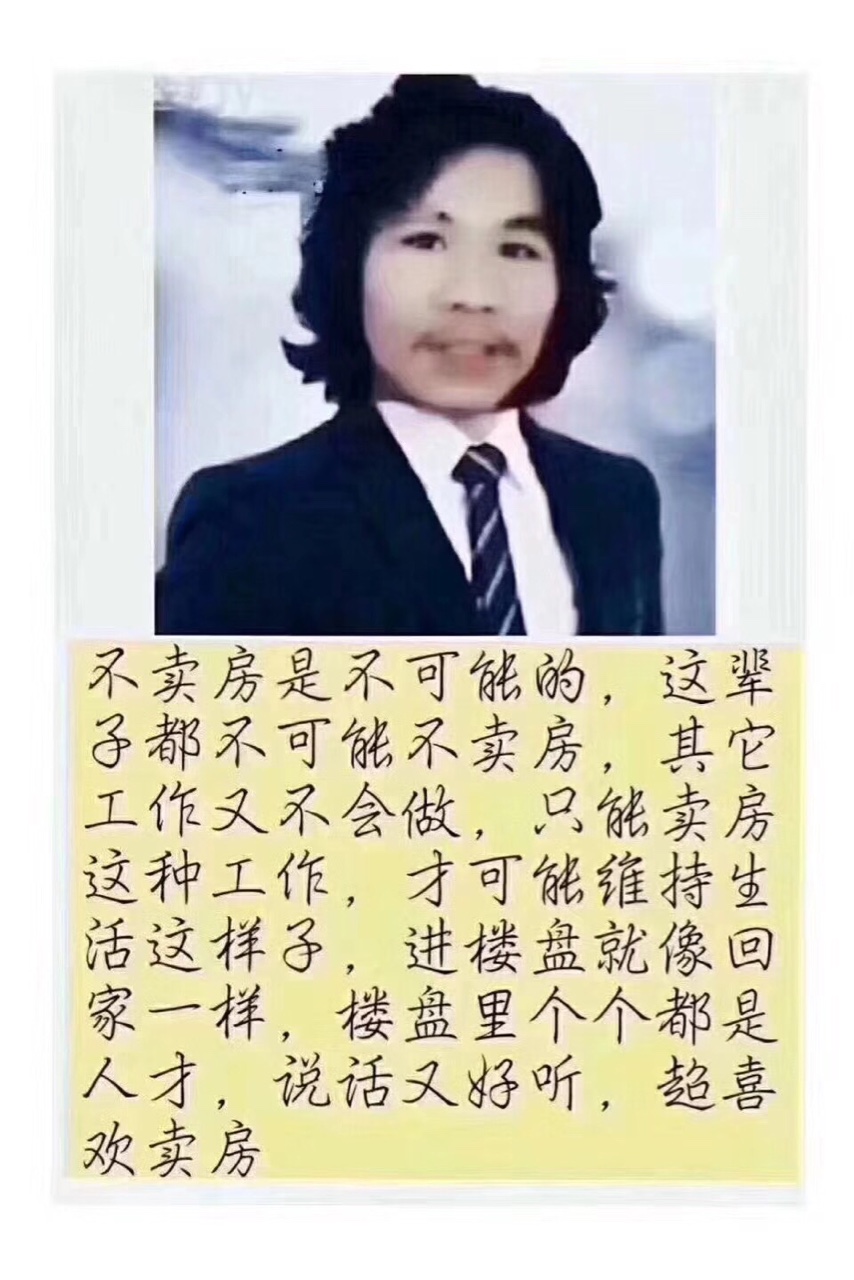 不卖房是不可能的，这辈
子都不可能不卖房，其它
工作又不会做，只能卖房
这种工作，才可能维持生
活这样子，进楼盘就像回
家一样，楼盘里个个都是
人才，说话又好听，超喜
欢卖房